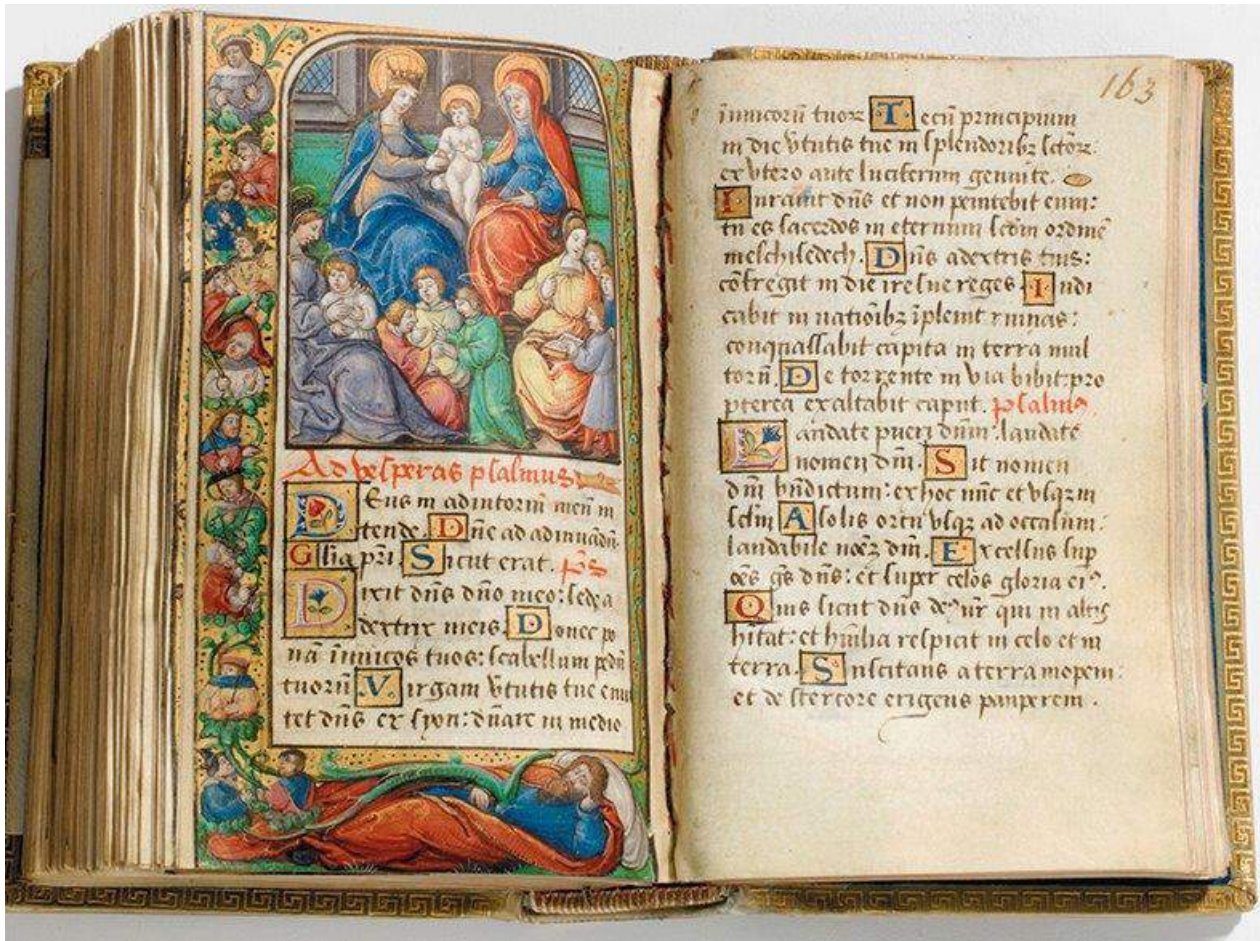 Ad vesperas psalmus
DEus in adiutoriũ meũ in
tende. Dñe ad adiuuãdũ.
Gl̃ia pr̃i. Sicut erat. p̃s
Dixit dñs dño meo: sede a
dextris meis. Donec po
nã inimicos tuos: scabellum pedũ
tuorũ. Virgam v̾tutis tue emit
tet dñs ex syon: dñare in medio
163
inimicorũ tuoꝝ Tecũ principium
in die v̾tutis tue in splendoribꝫ sctõꝝ:
ex vtero ante luciferum genui te.
Iurauit dñs et non penitebit eum:
tu es sacerdos in eternum scd̃m ordinẽ
melchisedech. Dñs a dextris tuis:
cõfregit in die ire sue reges. Iudi
cabit in natiõibꝫ ĩpleuit ruinas:
conquassabit capita in terra mul
torũ. De torrente in via bibit: pro
pterea exaltabit caput. psalmus
Laudate pueri dñm: laudate
nomen dñi. Sit nomen
dñi bñdictum: ex hoc nũc et vsqꝫ in
sclm̃ A solis ortu vsqꝫ ad occasum:
laudabile noẽꝫ dñi. Excelsus sup
oẽs gẽs dñs: et super celos gloria eiꝰ.
Quis sicut dñs deꝰ nr̃ qui in altis
hitat: et hũilia respicit in celo et in
terra. Suscitans a terra inopem:
et de stercore erigens pauperem.